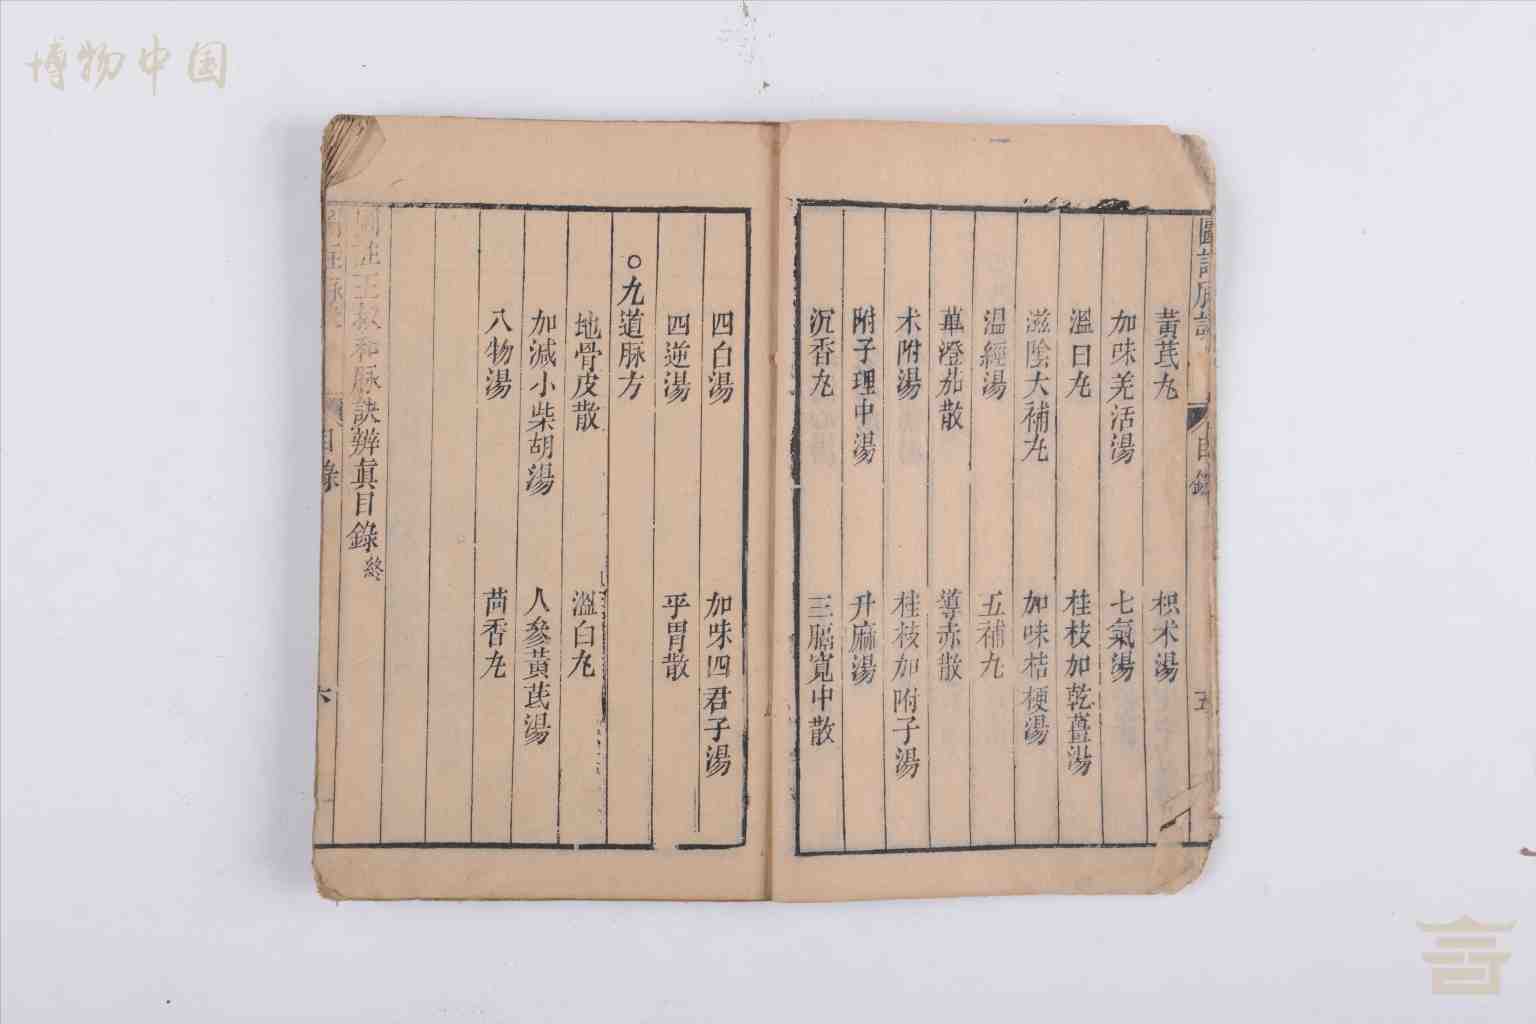 博物中国
圖註脉訣
目錄
五
黃芪丸
枳术湯
加味羌活湯
七氣湯
溫白丸
桂枝加乾薑湯
滋陰大補丸
加味桔梗湯
温經湯
五補丸
蓽澄茄散
導赤散
术附湯
桂枝加附子湯
附子理中湯
升麻湯
沉香丸
三膈寬中散
四白湯
加味四君子湯
四逆湯
平胃散
○九道脉方
地骨皮散
溫白丸
加減小柴胡湯
人參黃芪湯
八物湯
茴香丸
圖註王叔和脉訣辨真目錄終
目錄
六